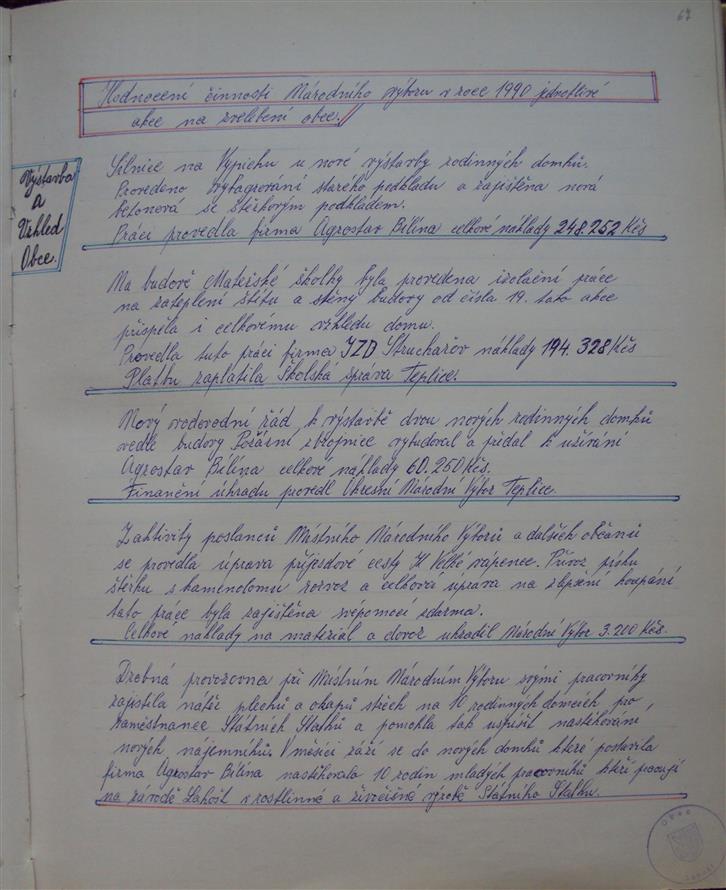 67
Hodnocení činnosti Národního výboru v roce 1990 jednotlivé
akce na zvelebení obce.
Výstavba
a
Vzhled
Obce.
Silnice na Vypichu u nové výstavby rodinných domků.
Provedeno vybagrování starého podkladu a zajištěna nová
betonová se štěrkovým podkladem.
Práci provedla firma Agrostav Bílina celkové náklady 248.252 Kčs
Na budově Mateřské školky byla provedena izolační práce
na zateplení štítu a stěny budovy od čísla 19. tato akce
přispěla i celkovému vzhledu domu.
Provedla tuto práci firma JZD Strucharov náklady 194.328 Kčs
Platbu zaplatila Školská správa Teplice.
Nový vodovodní řád k výstarbě dvou nových rodinných domků
vedle budovy Požární zbrojnice vybudoval a předal k užívání
Agrostav Bílina celkové náklady 60.250 Kčs.
Finanční úhradu provedl Okresní Národní Výbor Teplice.
Z aktivity poslanců Místního Národního Výborů a dalších občanů
se provedla úprava příjezdové cesty K Velké vápence. Přívoz písku
štěrku s kamenolomů rozvoz a celková úprava na zlepšení koupání
tato práce byla zajištěna svépomocí zdarma.
Celkové náklady na materiál a dovoz uhradil Národní Výbor 3.200 Kčs.
Drobná provozovna při Místním Národním Výboru svými pracovníky
zajistila nátěr plechů a okapů střech na 10 rodinných domcích pro
zaměstnance Státních Statků a pomohla tak uspíšit nastěhování
nových nájemníků. V měsíci září se do nových domků které postavila
firma Agrostav Bílina nastěhovalo 10 rodin mladých pracovníků kteří pracují
na závodě Lahošť v rostlinné a živočišné výrobě Státního Statku.
Obec
Lahošť